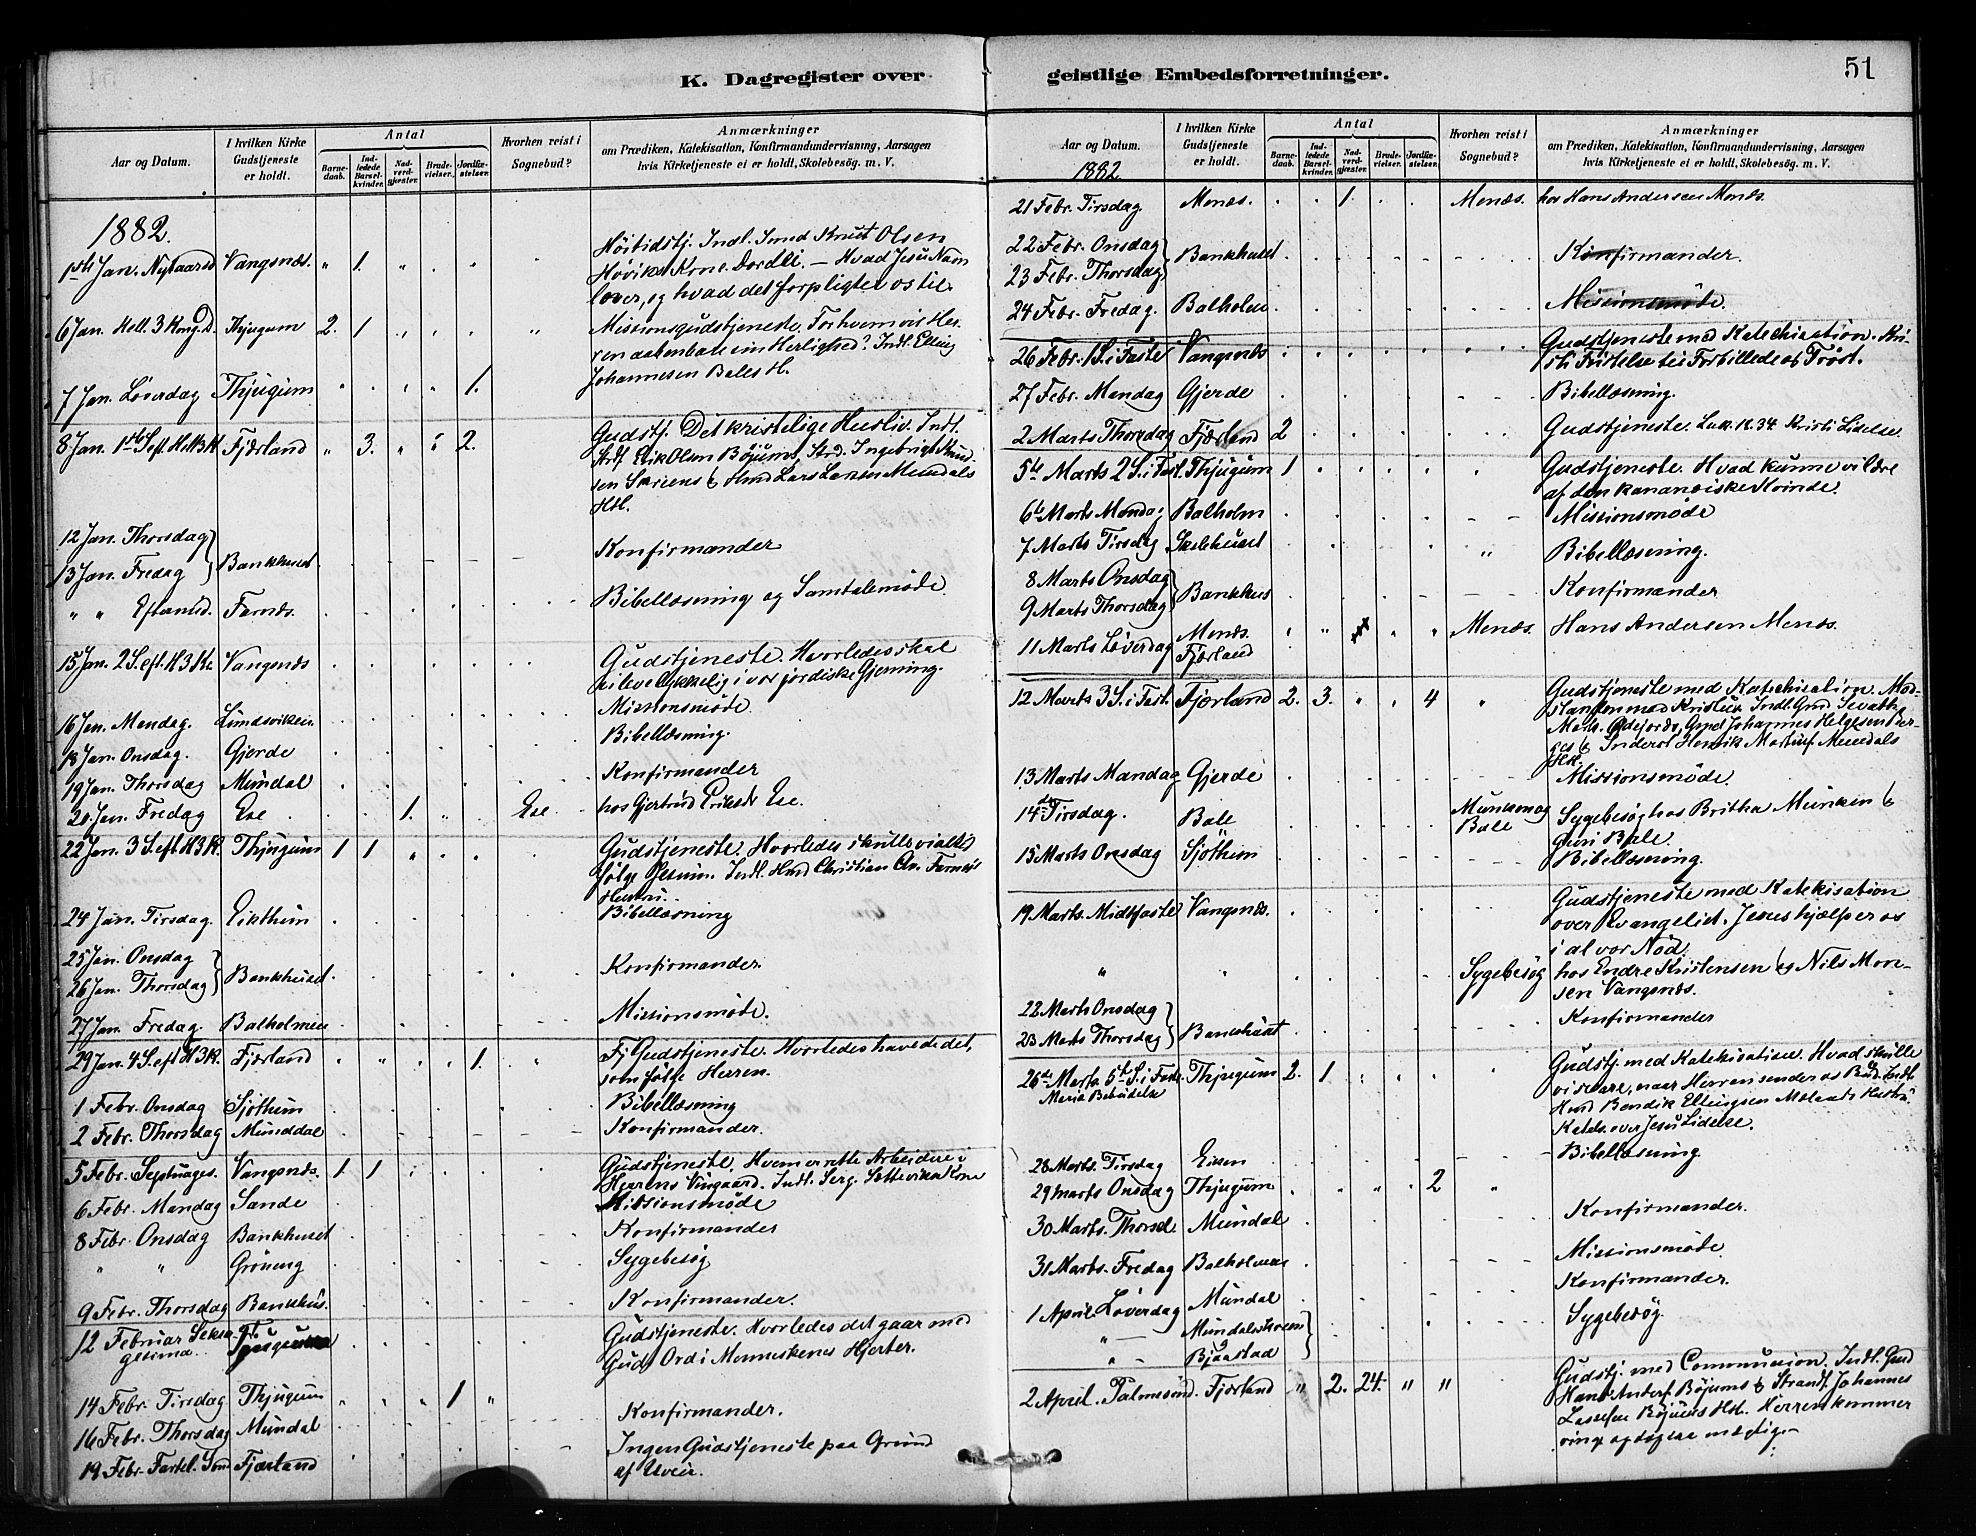 K. Dagregister over
Aar og Datum.
I hvilken Kirke Gudstjeneste er holdt.
Antal
Barnedaab.
Indledede Barselkvinder.
Nadverdgjester.
Brudevielser.
Jordfæstelser.
Hvorhen reist i Sognebud?
Anmærkninger
om Prædiken, Katekisation, Konfirmandundervisning, Aarsagen
hvis Kirketjeneste ei er holdt, Skolebesög. m. V.
1882.
Høitidstj. Indl. Smd Knut Olsen
1ste Jan. Nytaarsd Vangsnæs. " 1. " . . " Høviks Kone Dordei. — Hvad Jesu Navn
lover, og hvad det forpligter os til.
6 Jan. Hell. 3 Kong. D. Thjugum 2. 1 . . . " Missionsgudstjeneste. For hvem vil Her-
ren aabenbare sin Herlighed? Indl. Elling
Johannesen Balles H.
7 Jan. Løverdag Thjugum " . . . 1.
8 Jan. 1ste S. eft. H3K Fjærland " 3. " " 2. Gudstj. Det kristelige Husliv. Indl.
Strdf. Erik Olsen Bøjums, Strd. Ingebrigt Knud-
sen & Hmd Lars Larsen Mundals
Hst.
12 Jan. Thorsdag
13 Jan. Fredag Bankhuset. Konfirmander
" " Eftermd. Farnæs. Bibellæsning og Samtalemøde.
15 Jan. 2 S. eft. H3K. Vangsnæs Gudstjeneste. Hvorledes skal
vi leve lykkelig i vor jordiske Gjerning.
16 Jan. Mandag. Lundsviken. Missionsmøde.
18 Jan. Onsdag. Gjerde Bibellæsning.
19 Jan. Thorsdag Mundal Konfirmander
20 Jan. Fredag Ese . . 1. . Ese hos Gjertrud Eriksdr Ese.
22 Jan. 3 S. eft. H3K. Thjugum 1 1 Gudstjeneste. Hvorledes skulle vi altid
følge Jesum. Indl. Hmd Christian On. Farnæs
Hustru.
24 Jan. Tirsdag. Eikthun Bibellæsning
25 Jan. Onsdag
26 Jan. Thorsdag Bankhuset. Konfirmander.
27 Jan. Fredag. Balholmen Missionsmøde.
29 Jan. 4 S. eft H3K. Fjærland " . " . 1. Gudstjeneste. Hvorledes have de det,
som følge Herren.
1 Febr. Onsdag Sjøthun Bibellæsning
2 Febr. Thorsdag Munddal Konfirmander.
5 Febr. Septuages. Vangsnæs. 1 1 Gudstjeneste. Hvem er rette Arbeidere i
Herrens Vingaard. Indl. Serg. Kone
6 Febr. Mandag Sande Missionsmøde
8 Febr. Onsdag Bankhuset Konfirmander
" " Grøning Sygebesøg
9 Febr. Thorsdag Bankhus. Konfirmander.
12 Februar Seksa-
gesima. Thjugum Gudstjeneste. Hvorledes det gaar med
Guds Ord i Menneskenes Hjerter.
14 Febr. Tirsdag Thjugum " . . 1 "
16 Febr. Thorsdag Mundal Konfirmander.
19 Febr. Fastel. Sønd Fjærland Ingen Gudstjeneste paa Grund
af Uveir.
geistlige Embedsforretninger.
51
Aar og Datum.
I hvilken Kirke Gudstjeneste er holdt.
Antal
Barnedaab.
Indledede Barselkvinder.
Nadverdgjester.
Brudevielser.
Jordfæstelser.
Hvorhen reist i Sognebud?
Anmærkninger
om Prædiken, Katekisation, Konfirmandundervisning, Aarsagen
hvis Kirketjeneste ei er holdt, Skolebesög. m. V.
1882
21 Febr. Tirsdag. Menæs. . . 1. . . Menæs. hos Hans Andersen Menæs.
22 Febr. Onsdag
23 Febr. Thorsdag Bankhuset Konfirmander.
24 Febr. Fredag. Balholm Missionsmøde.
26 Febr. 1 S. i Faste Vangsnæs Gudstjeneste med Katechisation. Kri-
sti Fristelse til Forbillede og Trøst.
27 Febr. Mandag Gjerde Bibellæsning.
2 Marts Thorsdag Fjærland 2 Gudstjeneste. Luk. 12.34. Kristi Lidelse.
5te Marts 2 S. i Fast. Thjugum 1 Gudstjeneste. Hvad kunne vi lære
af den kananæiske Kvinde.
6te Marts Mandag Balholm Missionsmøde
7 Marts Tirsdag Skolehuset " Bibellæsning.
8 Marts Onsdag
9 Marts Thorsdag Bankhus Konfirmander
11 Marts Løverdag Menæs. Fjærland Menæs. Hans Andersen Menæs.
12 Marts 3 S. i Fast. Fjærland 2. 3. " . 4 " Gudstjeneste med Katechisation. Mod-
standen mod Kristus. Indl. Gmd. Sevath
Mads. Ødejords, Gmd Johannes Helgesen Ber-
ges & Inderst Henrik Martinsf. Mundals
Hst.
13 Marts Mandag Gjerde Missionsmøde.
14de Tirsdag. Bale Munken og Bale Sygebesøg hos Britha Munken &
Guri Bale.
15 Marts Onsdag Sjøthun Bibellæsning.
19 Marts. Midtfaste Vangsnæs. Gudstjeneste med Katekisation
over Evangeliet. Jesus hjælper os
i al vor Nød.
" " Sygebesøg hos Endre Kristensen og Nils Mon-
sen Vangsnæs.
22 Marts Onsdag
23 Marts Thorsdag Bankhuset Konfirmander
26de Marts 5te S. i Faste. Thjugum 2. 1 Gudstj. med Katekisation. Hvad skulle
Mariæ Bebudelse vi svare, naar Herren sender os Bud. Indl.
Hmd Bendik Ellingsen Hustru.
Katek. over Jesu Lidelse.
28 Marts. Tirsdag Eiken Bibellæsning
29 Marts Onsdag Thjugum . . " . 2 "
30 Marts. Thorsd. Mundal Konfirmander.
31 Marts. Fredag Balholmen Missionsmøde
1 April Løverdag Mundal Konfirmander.
" — Mundalsskreen
" - Bjåstad Sygebesøg.
2 April. Palmesønd. Fjærland " 2. 24. " " Gudstj. med Communion. Indl. Gmd
Hans Andersf. Bøjums & Strandf. Johannes
Lassesen Bøjums Hst. Herren kommer
ringe og dog saa mægtig.